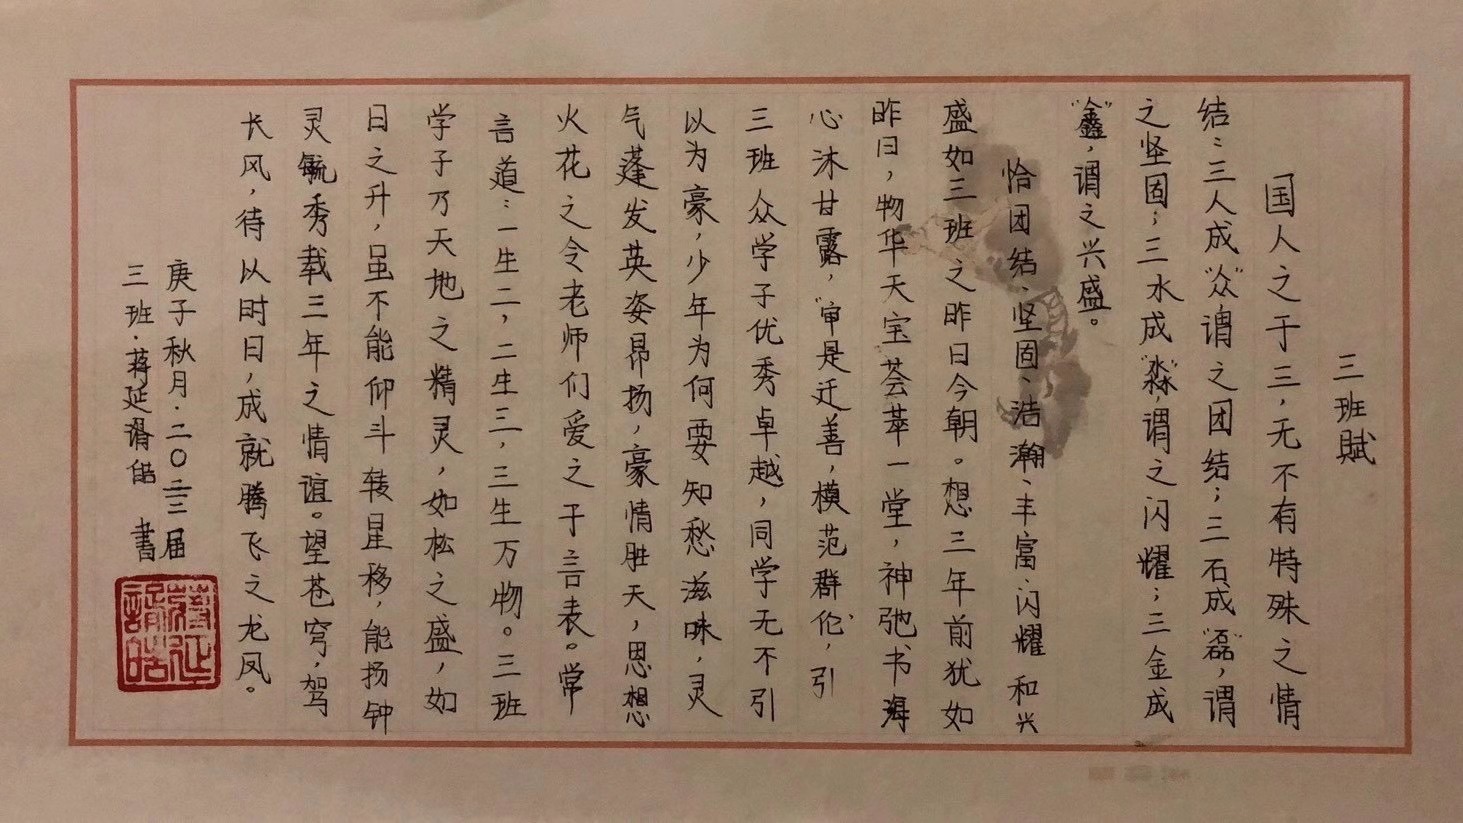 三班赋
国人之于三，无不有特殊之情
结：三人成“众”，谓之团结；三石成“磊”，谓
之坚固；三水成“淼”，谓之闪耀；三金成
“鑫”，谓之兴盛。
恰团结、坚固、浩瀚、丰富、闪耀和兴
盛如三班之昨日今朝。想三年前犹如
昨日，物华天宝荟萃一堂，神弛书海
心沐甘露，“审是迁善，模范群伦”，引
三班众学子优秀卓越，同学无不引
以为豪，少年为何要知愁滋味，灵
气蓬发英姿昂扬，豪情胜天，思想
火花之令老师们爱之于言表。常
言道：一生二，二生三，三生万物。三班
学子乃天地之精灵，如松之盛，如
日之升，虽不能仰斗转星移，能扬钟
灵毓秀载三年之情谊。望苍穹，驾
长风，待以时日，成就腾飞之龙凤。
庚子秋月·二〇二三届
三班·蒋延谞皓 書
蔣延
諝皓